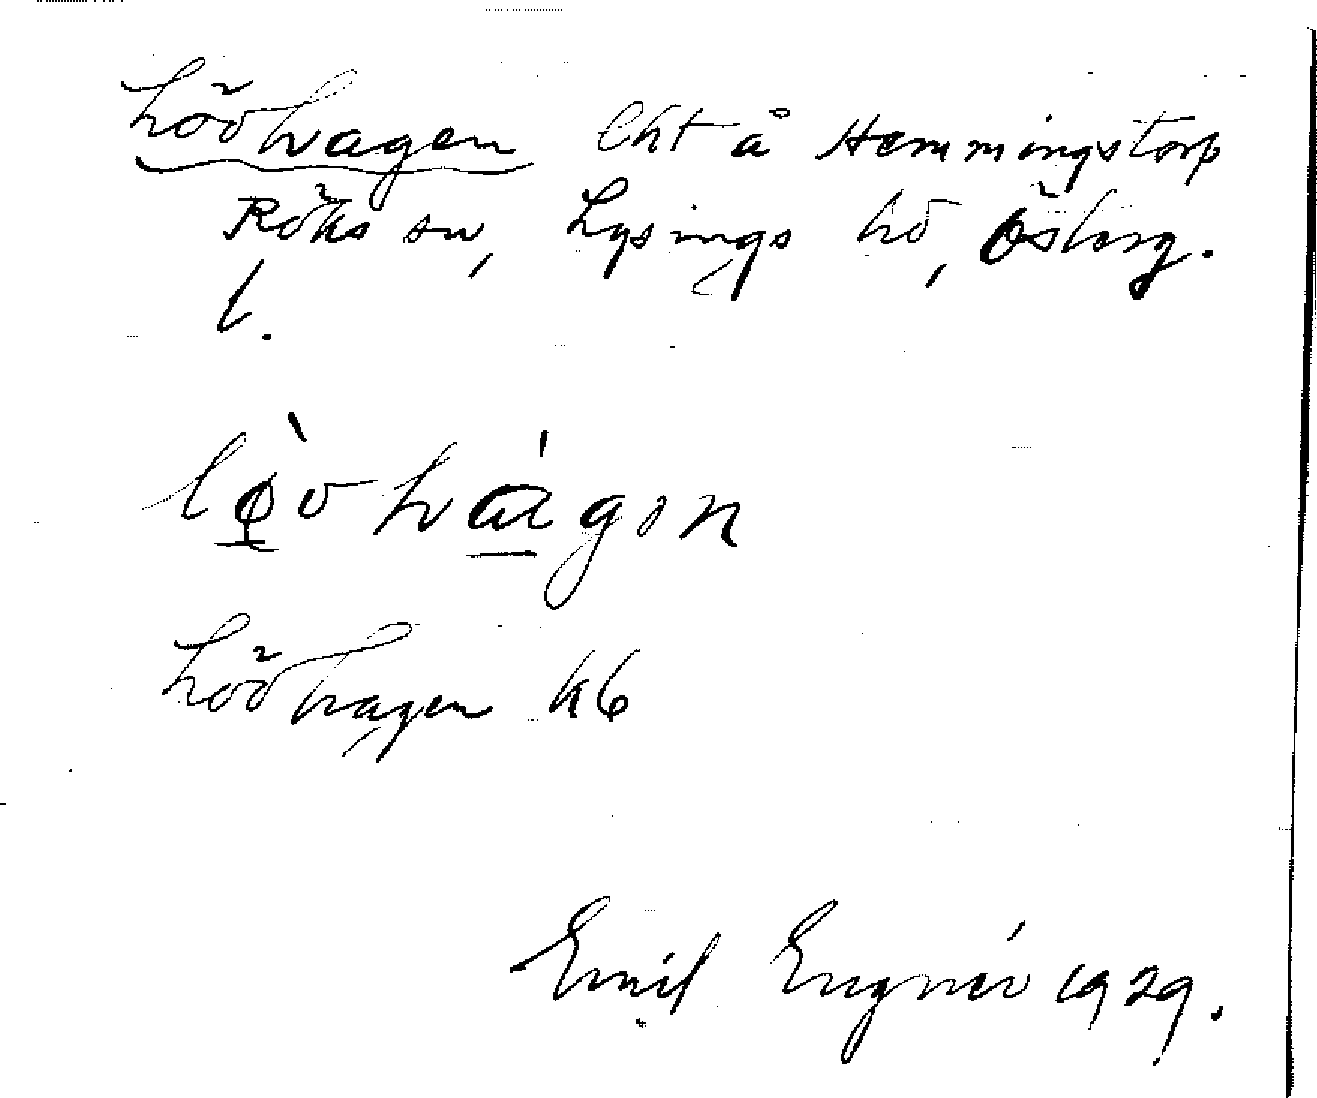 Lövhagen Lht å Hemmingstorp
Röks sn, Lysings hd, Österg.
l.
lø̀vhágɔn
Lövhagen k6
Emil Engnér 1929.